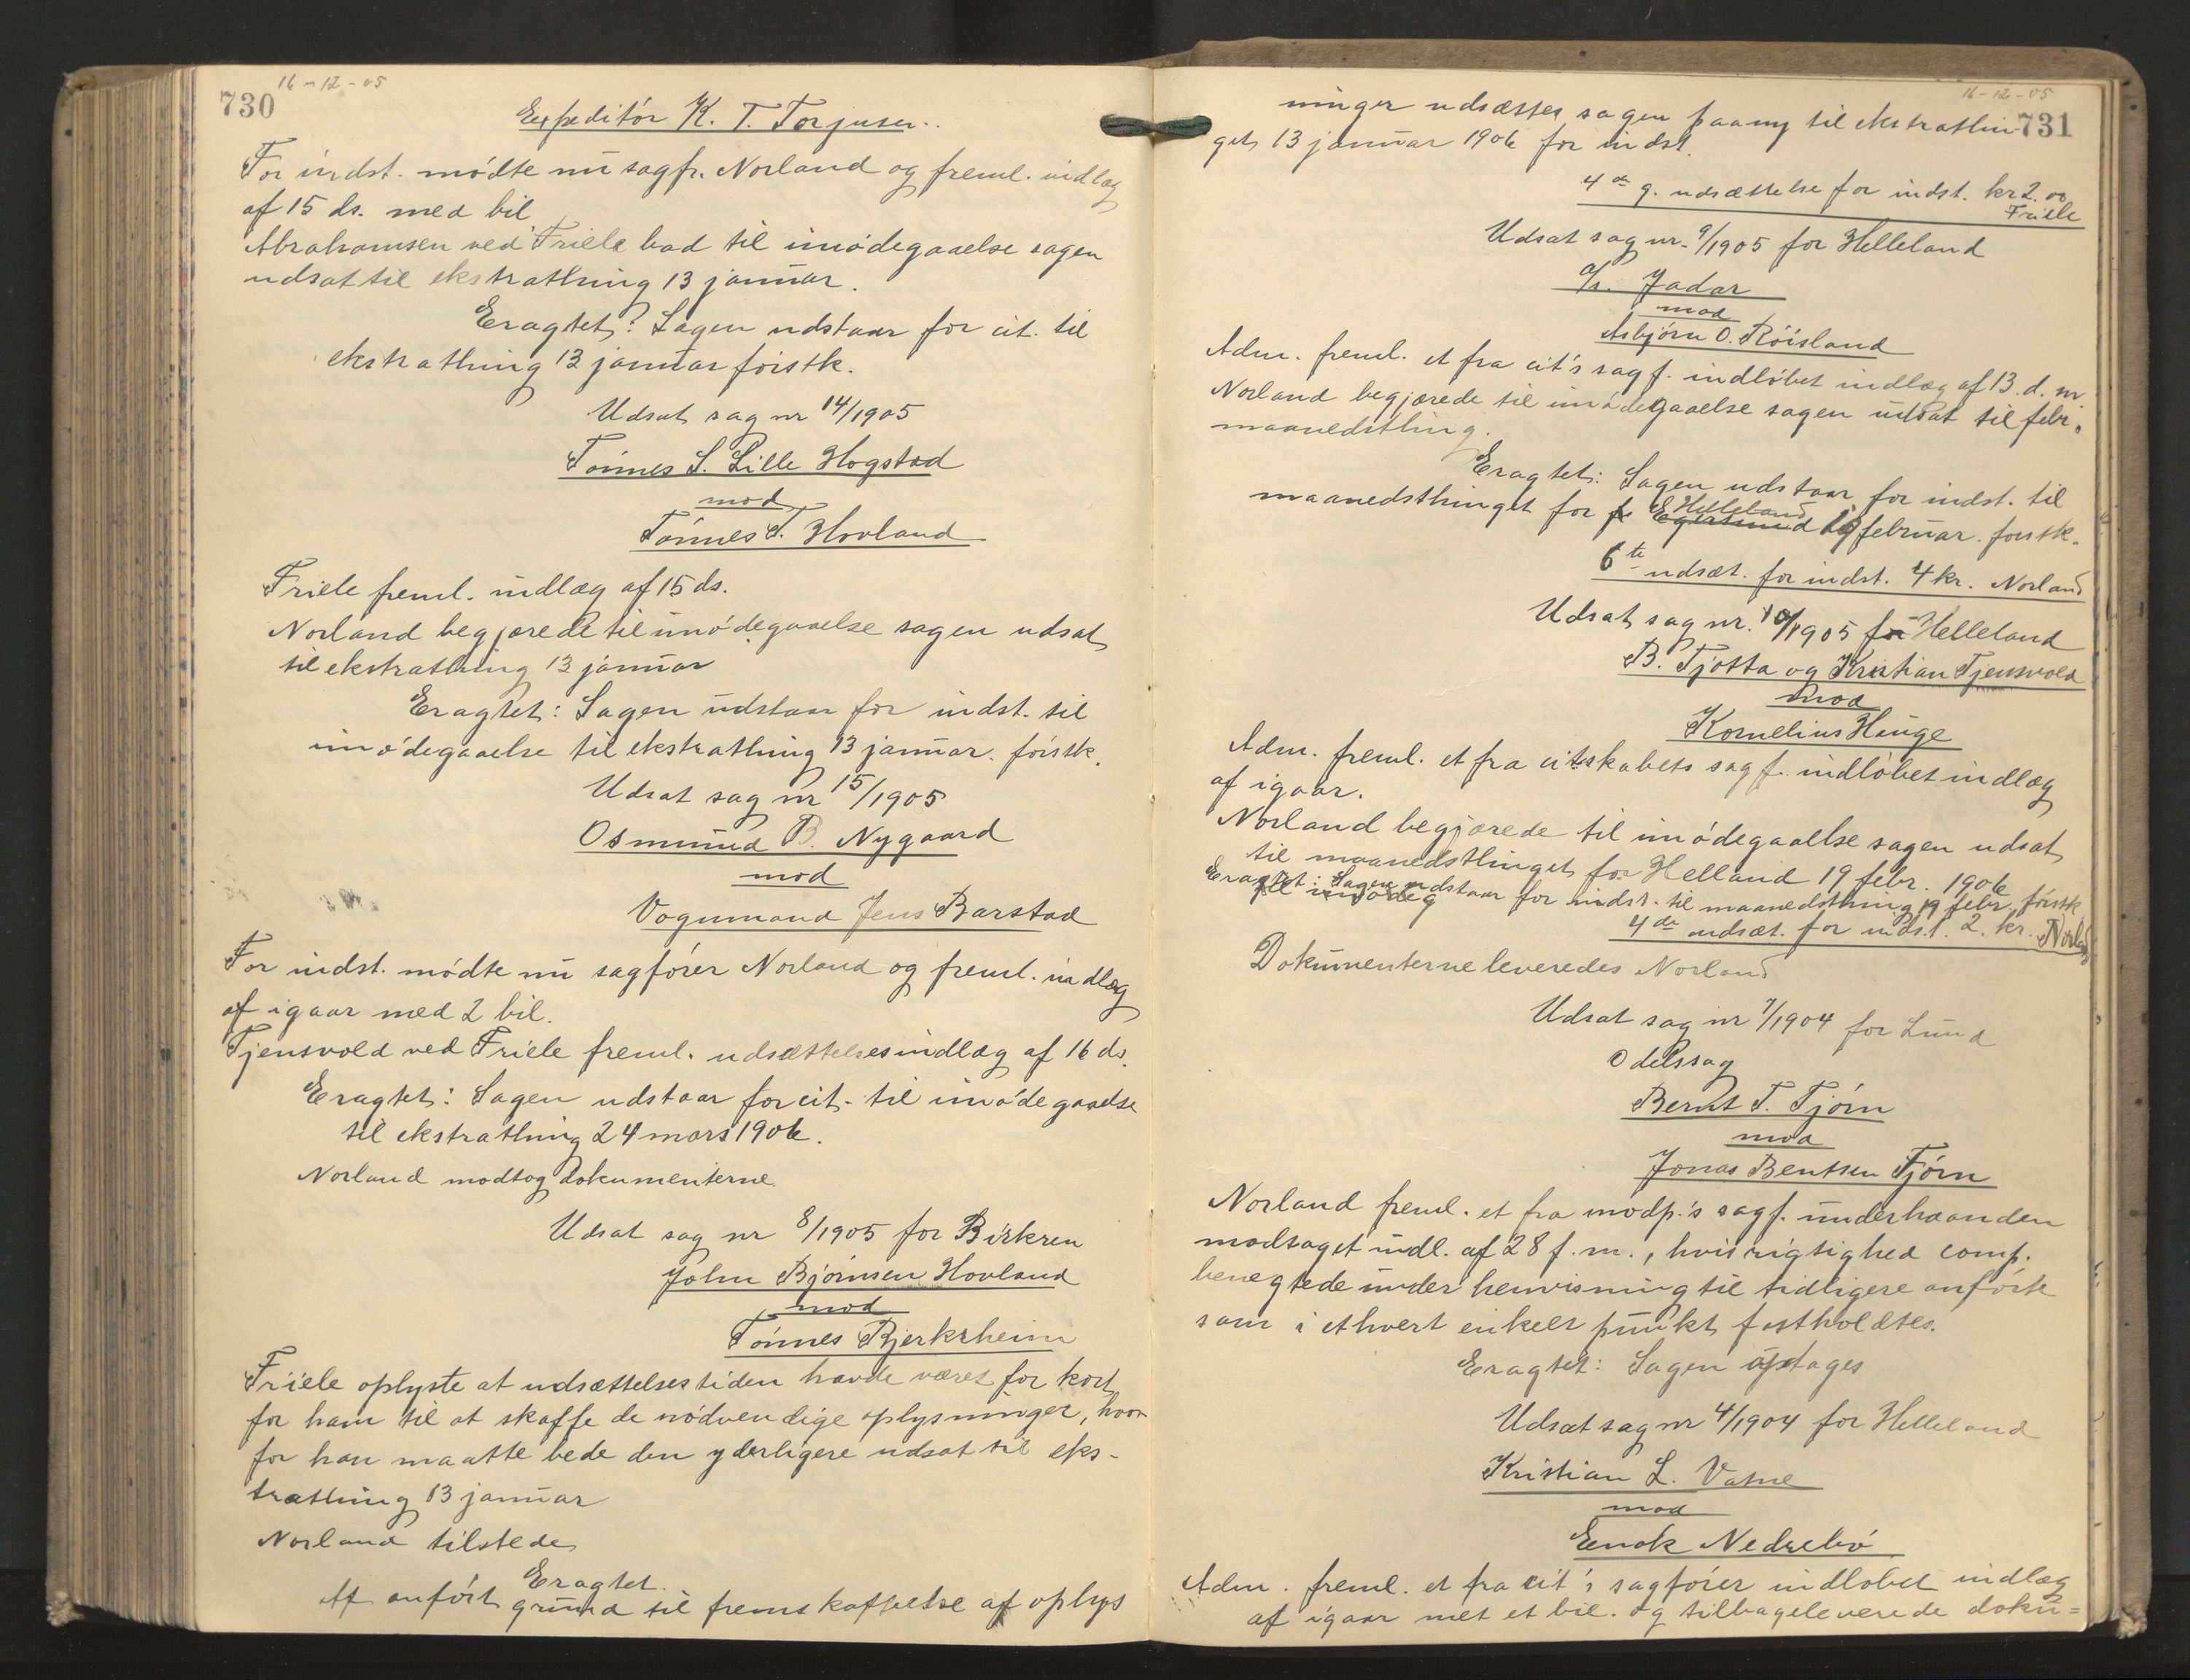 730
16-12-05
Expeditør K. T. Torjusen.
For indst. mødte nu sagfr. Norland og freml. indlæg
af 15 ds. med bil
Abrahamsen ved Friele bad til imødegaaelse sagen
udsat til ekstrathing 13 januar.
Eragtet: Sagen udstaar for cit. til
ekstrathing 13 januar førstk.
Udsat sag nr 14/1905
Tønnes S. Lille Hogstad
mod
Tønnes T. Hovland
Friele freml. indlæg af 15 ds.
Norland begjærede til imødegaaelse sagen udsat
til ekstrathing 13 januar
Eragtet: Sagen udstaar for indst. til
imødegaaelse til ekstrathing 13 januar førstk.
Udsat sag nr 15/1905
Osmund B. Nygaard
mod
Vognmand Jens Barstad
For indst. mødte nu sagfører Norland og freml. indlæg
af igaar med 2 bil.
Tjensvold ved Friele freml. udsættelsesindlæg af 16 ds.
Eragtet: Sagen udstaar for cit. til imødegaaelse
til ekstrathing 24 mars 1906.
Norland modtog dokumenterne
Udsat sag nr 8/1905 for Birkren
John Bjørnsen Hovland
mod
Tønnes Bjerkrheim
Friele oplyste at udsættelsestiden havde været for kort
for ham til at skaffe de nødvendige oplysninger, hvor
for han maatte bede den yderligere udsat til eks-
trathing 13 januar
Norland tilstede
Eragtet.
Af anført grund til fremskaffelse af oplys
731
16-12-05
ninger udsættes sagen paany til ekstrathin
get 13 januar 1906 for indst.
4de g. udsættelse for indst. kr 2.00
Friele
Udsat sag nr. 9/1905 for Helleland
a/s. Jadar
mod
Asbjørn O. Røisland
Adm. freml. et fra cit's sagf. indløbet indlæg af 13. d. m
Norland begjærede til imødegaaelse sagen udsat til febr.
maanedsthing.
Eragtet: Sagen udstaar for indst. til
Helleland
maanedsthinget for Egersund 19 februar førstk.
6te udsæt. for indst. 4 kr. Norland
Udsat sag nr. 10/1905 for Helleland
B. Tjotta og Kristian Tjensvold
mod
Kornelius Hauge
Adm. freml. et fra citskabets sagf. indløbet indlæg
af igaar.
Norland begjærede til imødegaaelse sagen udsat
til maanedsthinget for Helland 19 febr. 1906
Eragtet: Sagen udstaar for indst. til maanedsthing 19 febr. førstk
til imødeg
4de udsæt. for indst. 2. kr. Norland
Dokumenterne leveredes Norland
Udsat sag nr 7/1904 for Lund
Odelssag
Bernt T. Tjørn
mod
Jonas Bentsen Tjørn
Norland freml. et fra modp.'s sagf. underhaanden
modtaget indl. af 28 f. m., hvis rigtighed comp.
benegtede under henvisning til tidligere anførte
som i ethvert enkelt punkt fastholdtes.
Eragtet: Sagen optages
Udsat sag nr 4/1904 for Helleland
Kristian L. Vatne
mod
Enok Nedrebø
Adm. freml. et fra cit's sagfører indløbet indlæg
af igaar met et bil. og tilbageleverede doku=